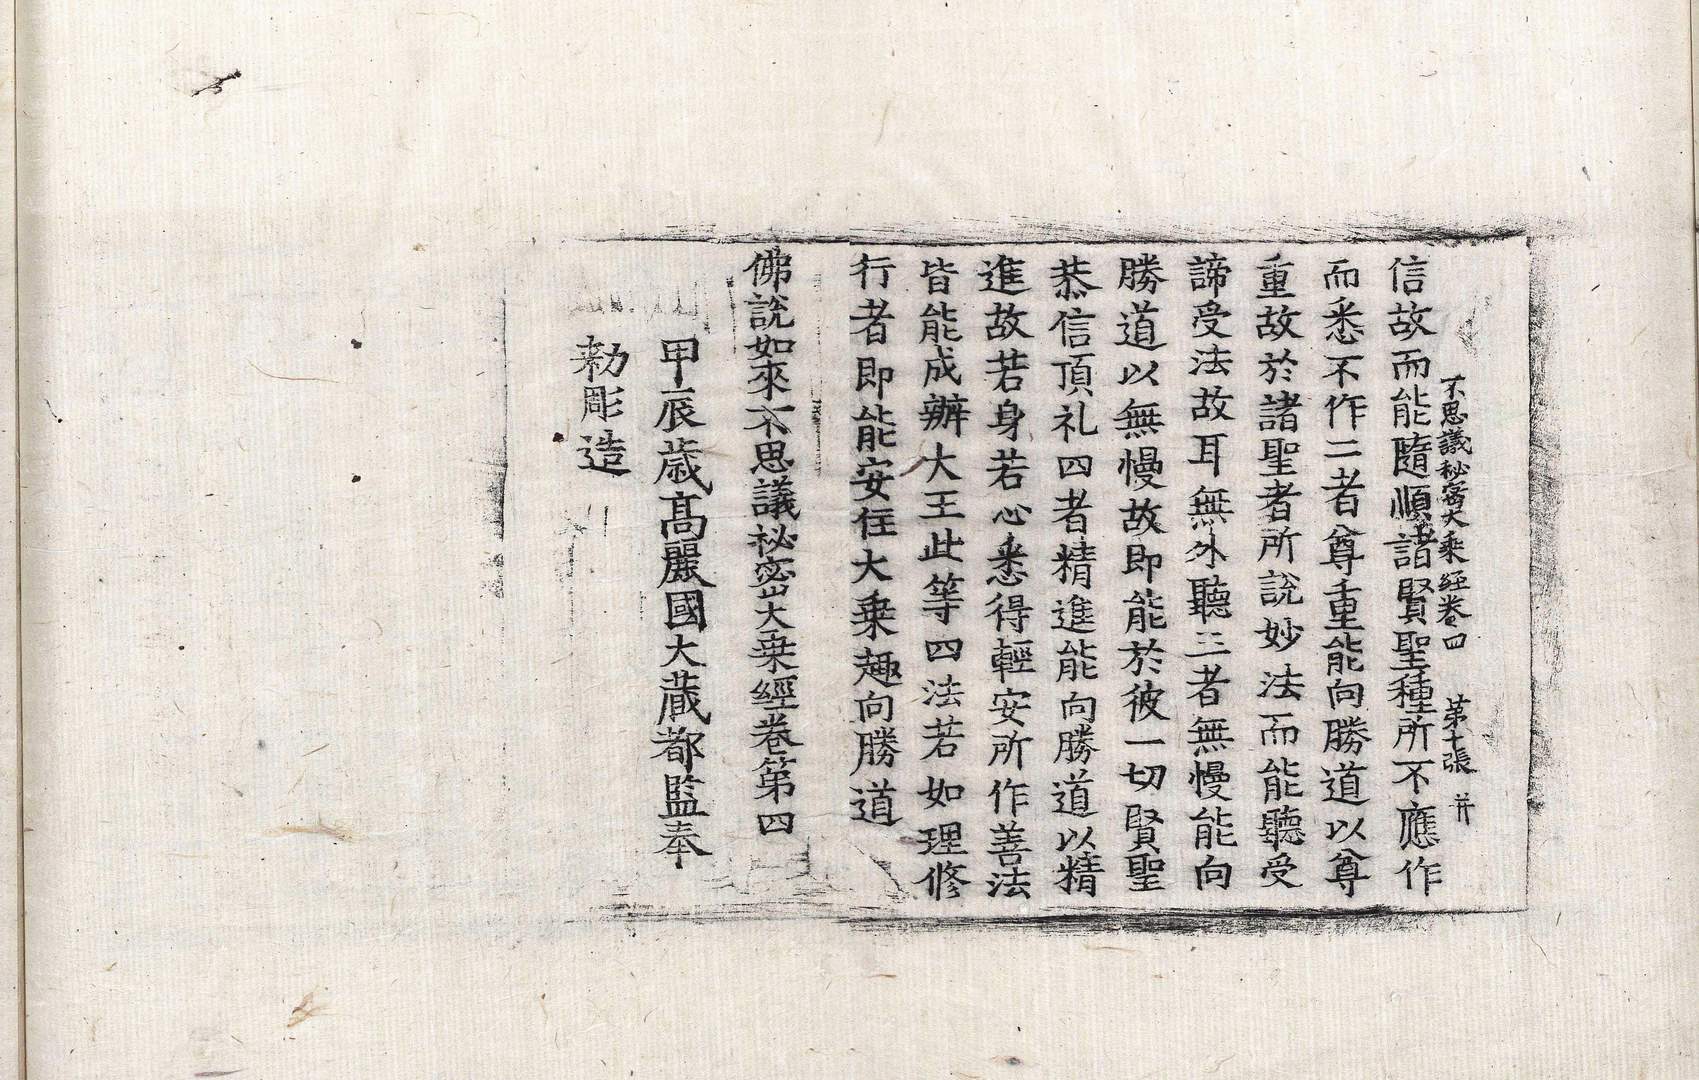 不思議秘密大乗経卷四　第十張　幷
信故而能隨順諸賢聖種所不應作
而悉不作二者尊重能向勝道以尊
重故於諸聖者所說妙法而能聽受
諦受法故耳無外聽三者無慢能向
勝道以無慢故即能於彼一切賢聖
恭信頂礼四者精進能向勝道以精
進故若身若心悉得輕安所作善法
皆能成辦大王此等四法若如理修
行者即能安住大乗趣向勝道
佛說如來不思議秘密大乗經卷第四
甲辰歳高麗國大藏都監奉
勑彫造